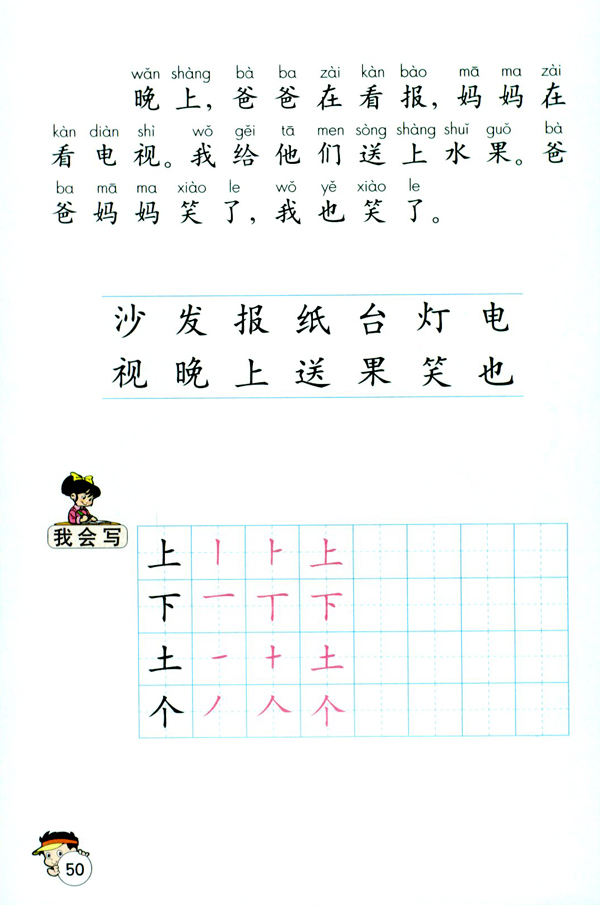 wǎn shàng bà ba zài kàn bào mā ma zài
晚上，爸爸在看报，妈妈在
kàn diàn shì wǒ gěi tā men sòng shàng shuǐ guǒ bà
看电视。我给他们送上水果。爸
ba mā ma xiào le wǒ yě xiào le
爸妈妈笑了，我也笑了。
沙发报纸台灯电
视晚上送果笑也
我会写
上 丨 ⺊ 上
下 一 丅 下
土 一 十 土
个 丿 人 个
50